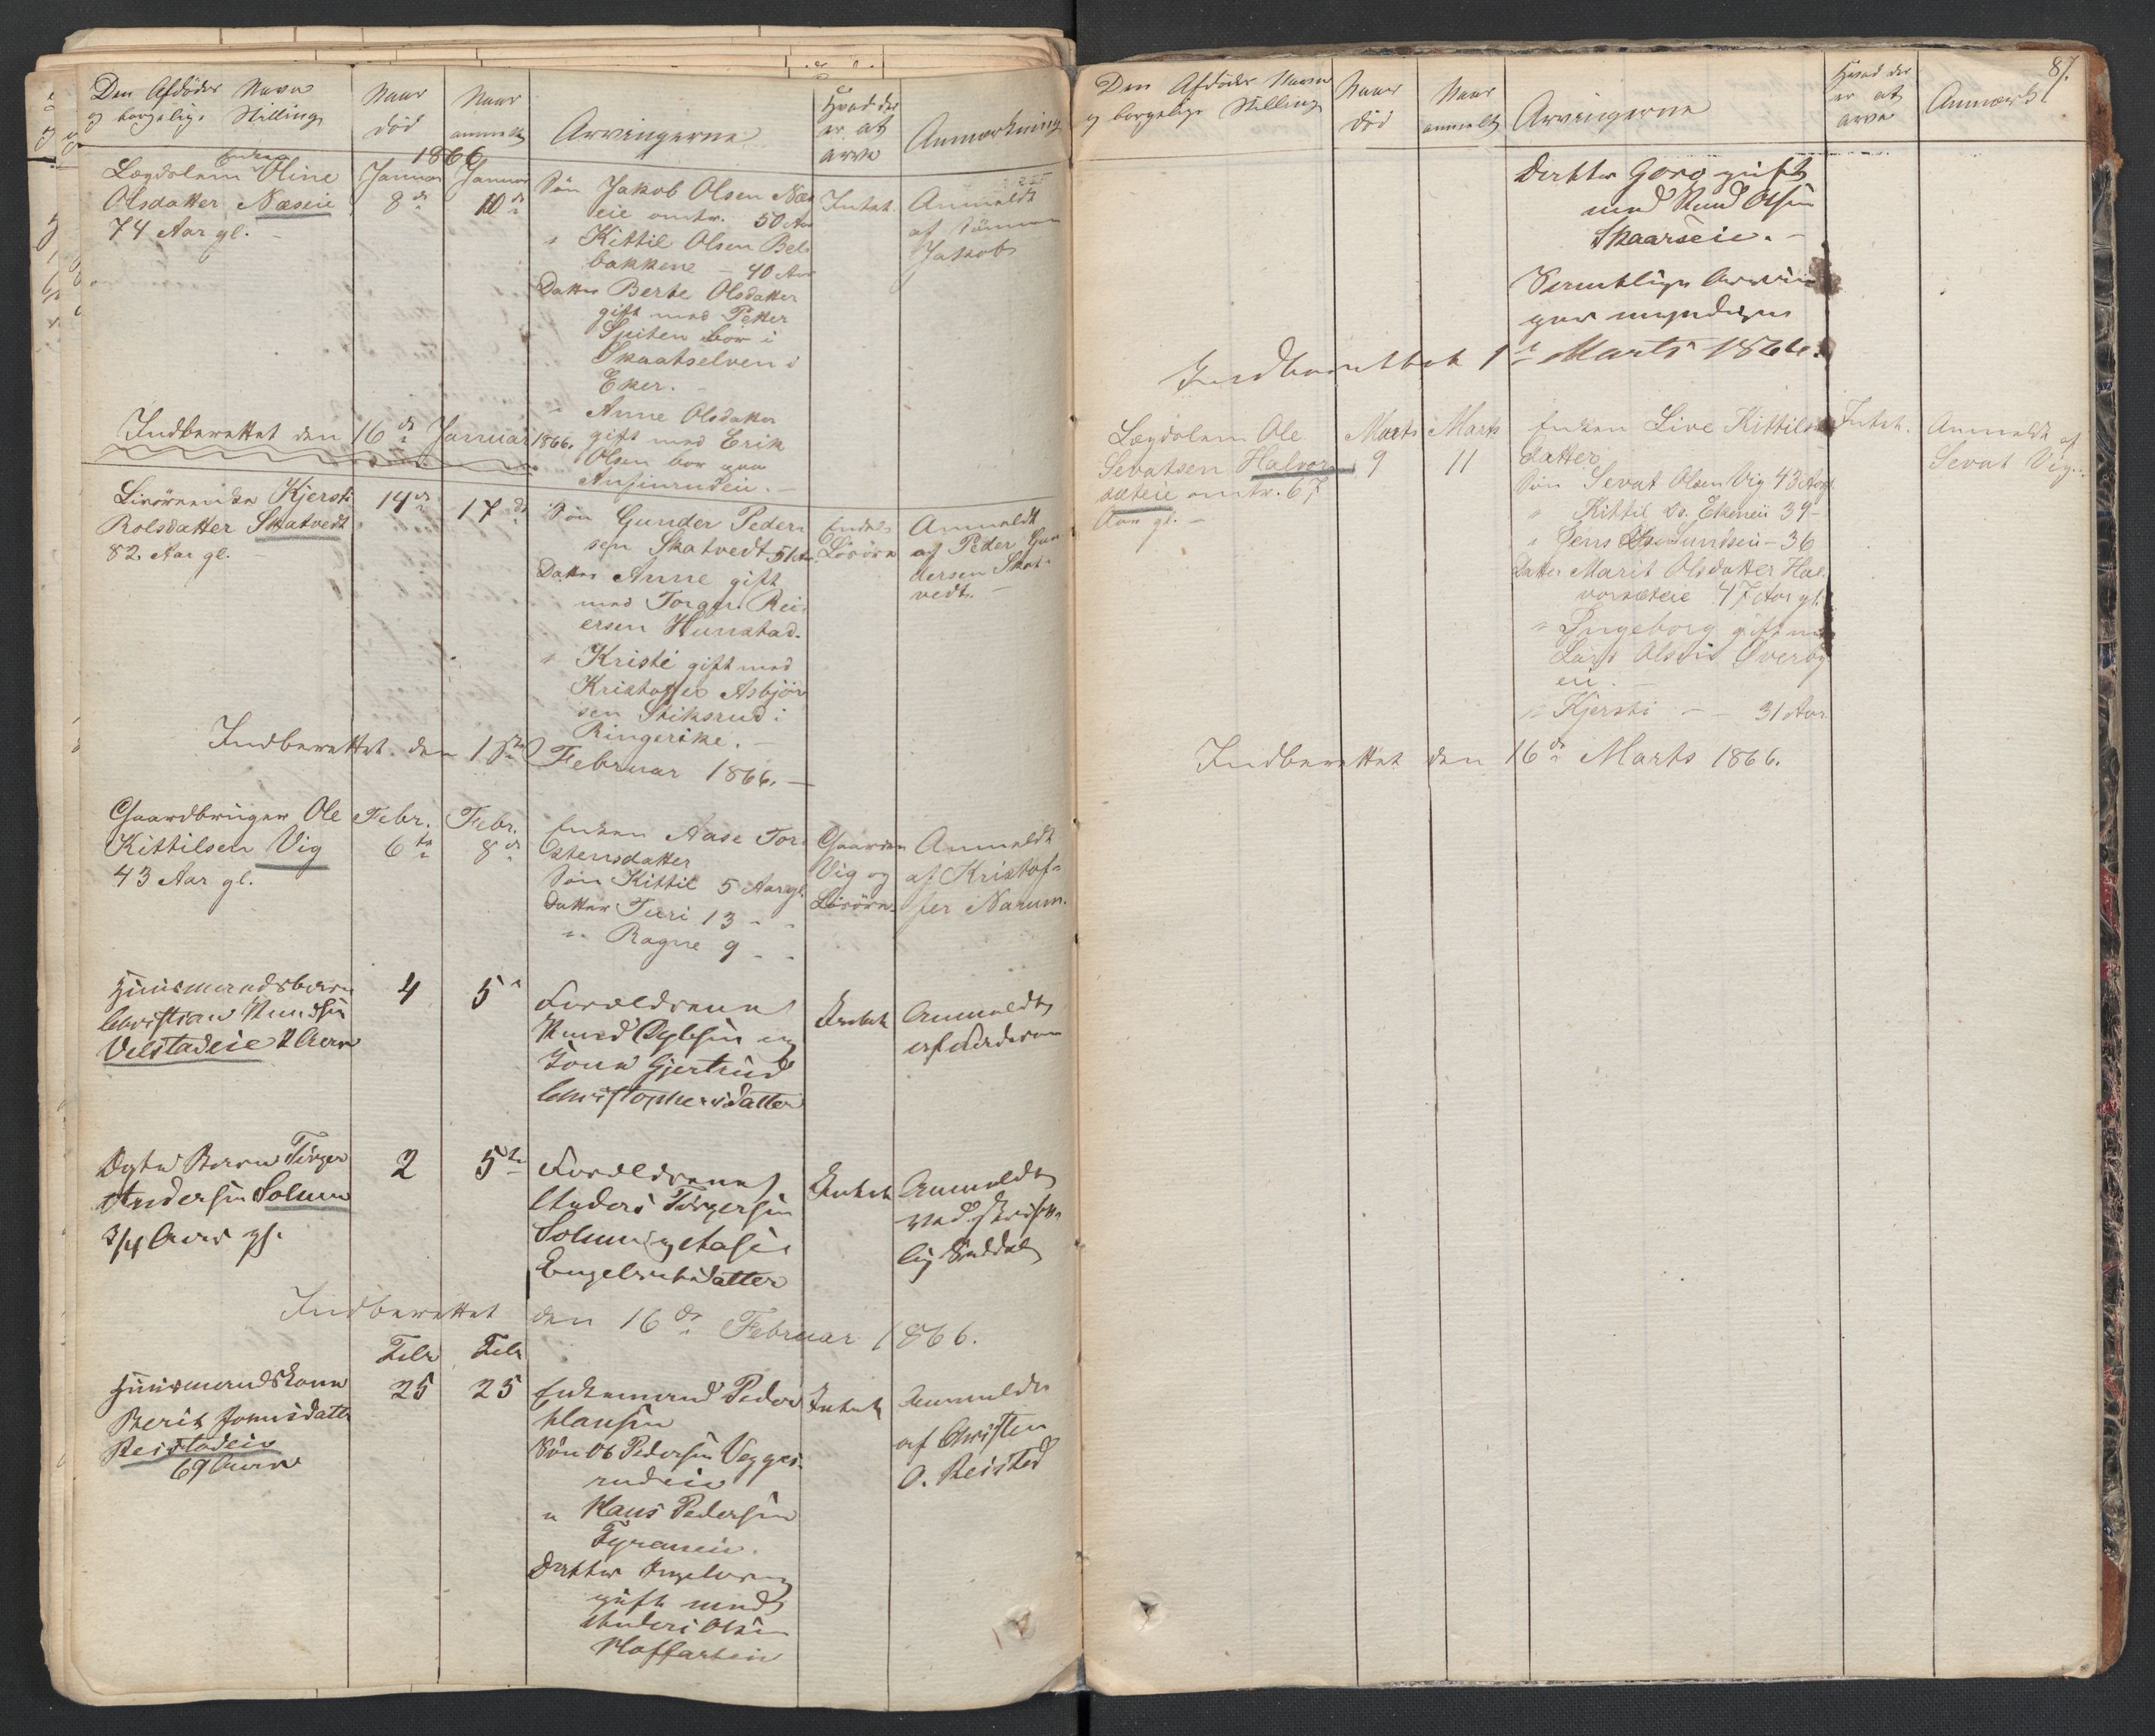 Den Afdødes Navn
og borgelige Stilling
Naar
død
Naar
anmeldt
Arvingerne
Hvad der
er at
arve
Anmærkning
1866
Lægdslem Enken Oline
Olsdatter Næseie
74 Aar gl. -
Januar
8de
Januar
10de
Søn Jakob Olsen Næs
eie omtr. 50 Aar
" Kittil Olsen Bels
bakkene - 40 Aar
Datter Berte Olsdatter
gift med Petter
Spiten bor i
Skaatselven i
Eker. -
" Anne Olsdatter
gift med Erik
Olsen bor paa
Anfinrudeie. -
Intet
Anmeldt
af Sønnen
Jakob
Indberettet den 16de Januar 1866.
Livøreenke Kjersti
Rolsdatter Skatvedt
82 Aar gl. -
14de
17de
Søn Gunder Peder
sen Skatvedt 51 Aar
Datter Anne gift
med Torger Rei
ersen Hunstad.
" Kristi gift med
Kristoffer Asbjørn
sen Stiksrud i
Ringerike. -
Endel
Løsøre
Anmeldt
af Peder Gun
dersen Skat-
vedt. -
Indberettet den 1ste Februar 1866. -
Gaardbruger Ole
Kittilsen Vig
43 Aar gl.
Febr.
6te
Febr.
8de
Enken Aase Tor
stensdatter
Søn Kittil 5 Aar gl.
Datter Turi 13 - -
" Ragne 9 - -
Gaarden
Vig og
Løsøre
Anmeldt
af Kristof-
fer Narum.
Huusmandsbarn
Christian Knudsen
Velstadeie 2 Aar
4
5
Forældrene
Knud og
Kone Gjertrud
Christophersdatter
Intet
Anmeldt
af Faderen
Ægte Barn Torger
Andersen Solum
3/4 Aar gl.
2
5te
Forældrene
Anders Torgersen
Solum og
Engebretsdatter
Intet
Anmeldt
ved skrift
lig Seddel
Indberettet den 16de Februar 1866.
Febr
Febr
Huusmandskone
Berit Jonsdatter
Reistadeie
69 Aar
25
25
Enkemand Peder
Hansen
Søn Ole Pedersen Vegges
rudeie
" Hans Pedersen
Fyraneie.
Datter Ingeborg
gift med
Anders Olsen
Hoffarteie
Intet
Anmeldt
af Christen
O. Reisted
87.
Den Afdødes Navn
og borgelige Stilling
Naar
død
Naar
anmeldt
Arvingerne
Hvad der
er at
arve
Anmærk
Datter Goro gift
med Knud Olsen
Skaarseie. -
Samtlige Arvin
ger myndige
Indberettet 1ste Marts 1866.
Lægdslem Ole
Sevatsen Halvor
sæteie omtr. 67
Aar gl. -
Marts
9
Marts
11
Enken Live Kittils
datter
Søn Sevat Olsen Vig 43 Aar
" Kittil do. Ekeneie 39 -
" Jens Sundseie - 36
Datter Marit Olsdatter Hal
vorsæteie 47 Aar gl.
" Ingeborg gift med
Lars Olsen Øverby
eie -
" Kjersti - - 31 Aar
Intet.
Anmeldt af
Sevat Vig.
Indberettet den 16de Marts 1866.